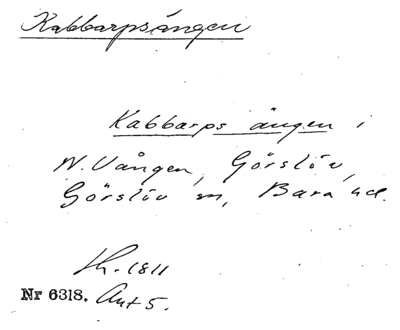 Kabbarpsängen
Kabbarps ängen i
N. Vången, Görslöv,
Görslöv sn, Bara hd.
Sh. 1811
Nr 6318. Akt 5.